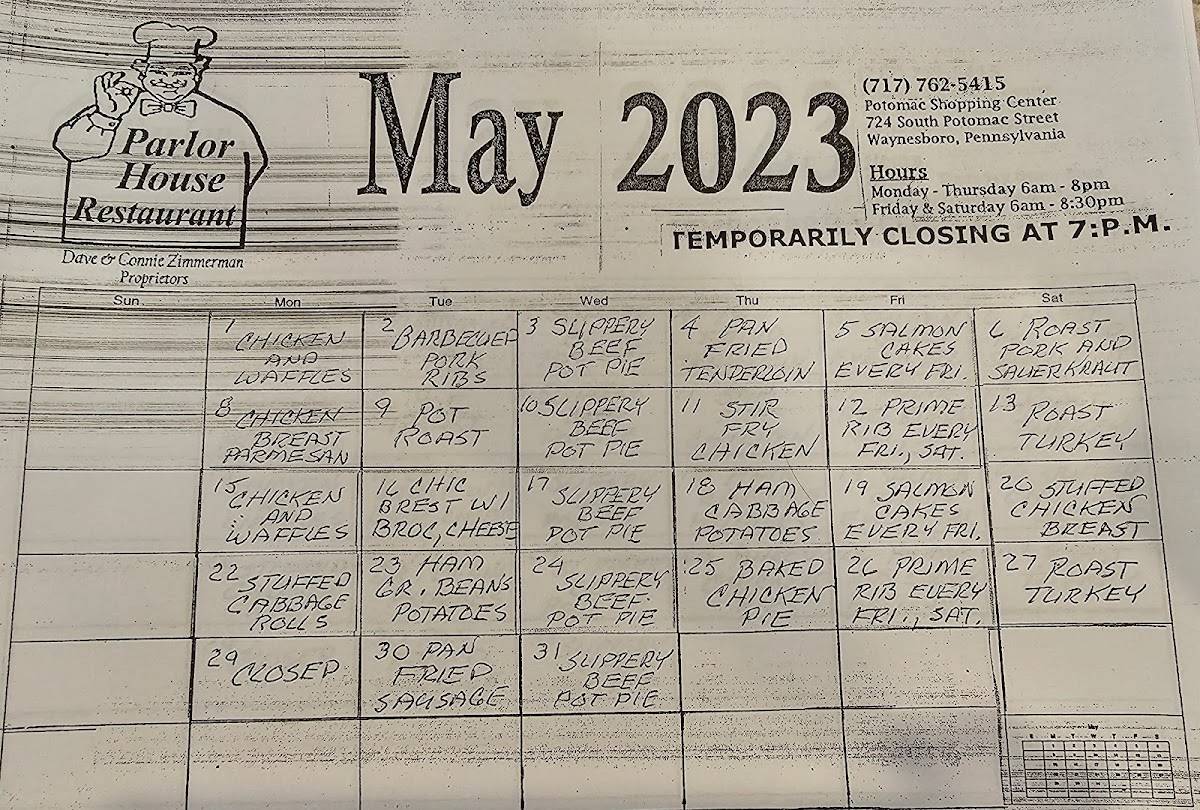 Parlor
House
Restaurant
Dave & Connie Zimmerman
Proprietors
May 2023
(717) 762-5415
Potomac Shopping Center
724 South Potomac Street
Waynesboro, Pennsylvania
Hours
Monday - Thursday 6am - 8pm
Friday & Saturday 6am - 8:30pm
TEMPORARILY CLOSING AT 7:P.M.
Sun Mon Tue Wed Thu Fri Sat
1 CHICKEN
AND
WAFFLES
2 BARBECUED
PORK
RIBS
3 SLIPPERY
BEEF
POT PIE
4 PAN
FRIED
TENDERLOIN
5 SALMON
CAKES
EVERY FRI.
6 ROAST
PORK AND
SAUERKRAUT
8 CHICKEN
BREAST
PARMESAN
9 POT
ROAST
10 SLIPPERY
BEEF
POT PIE
11 STIR
FRY
CHICKEN
12 PRIME
RIB EVERY
FRI., SAT.
13 ROAST
TURKEY
15 CHICKEN
AND
WAFFLES
16 CHIC
BREST W/
BROC, CHEESE
17 SLIPPERY
BEEF
POT PIE
18 HAM
CABBAGE
POTATOES
19 SALMON
CAKES
EVERY FRI.
20 STUFFED
CHICKEN
BREAST
22 STUFFED
CABBAGE
ROLLS
23 HAM
GR. BEANS
POTATOES
24 SLIPPERY
BEEF
POT PIE
25 BAKED
CHICKEN
PIE
26 PRIME
RIB EVERY
FRI., SAT.
27 ROAST
TURKEY
29 CLOSED
30 PAN
FRIED
SAUSAGE
31 SLIPPERY
BEEF
POT PIE
May
S M T W T F S